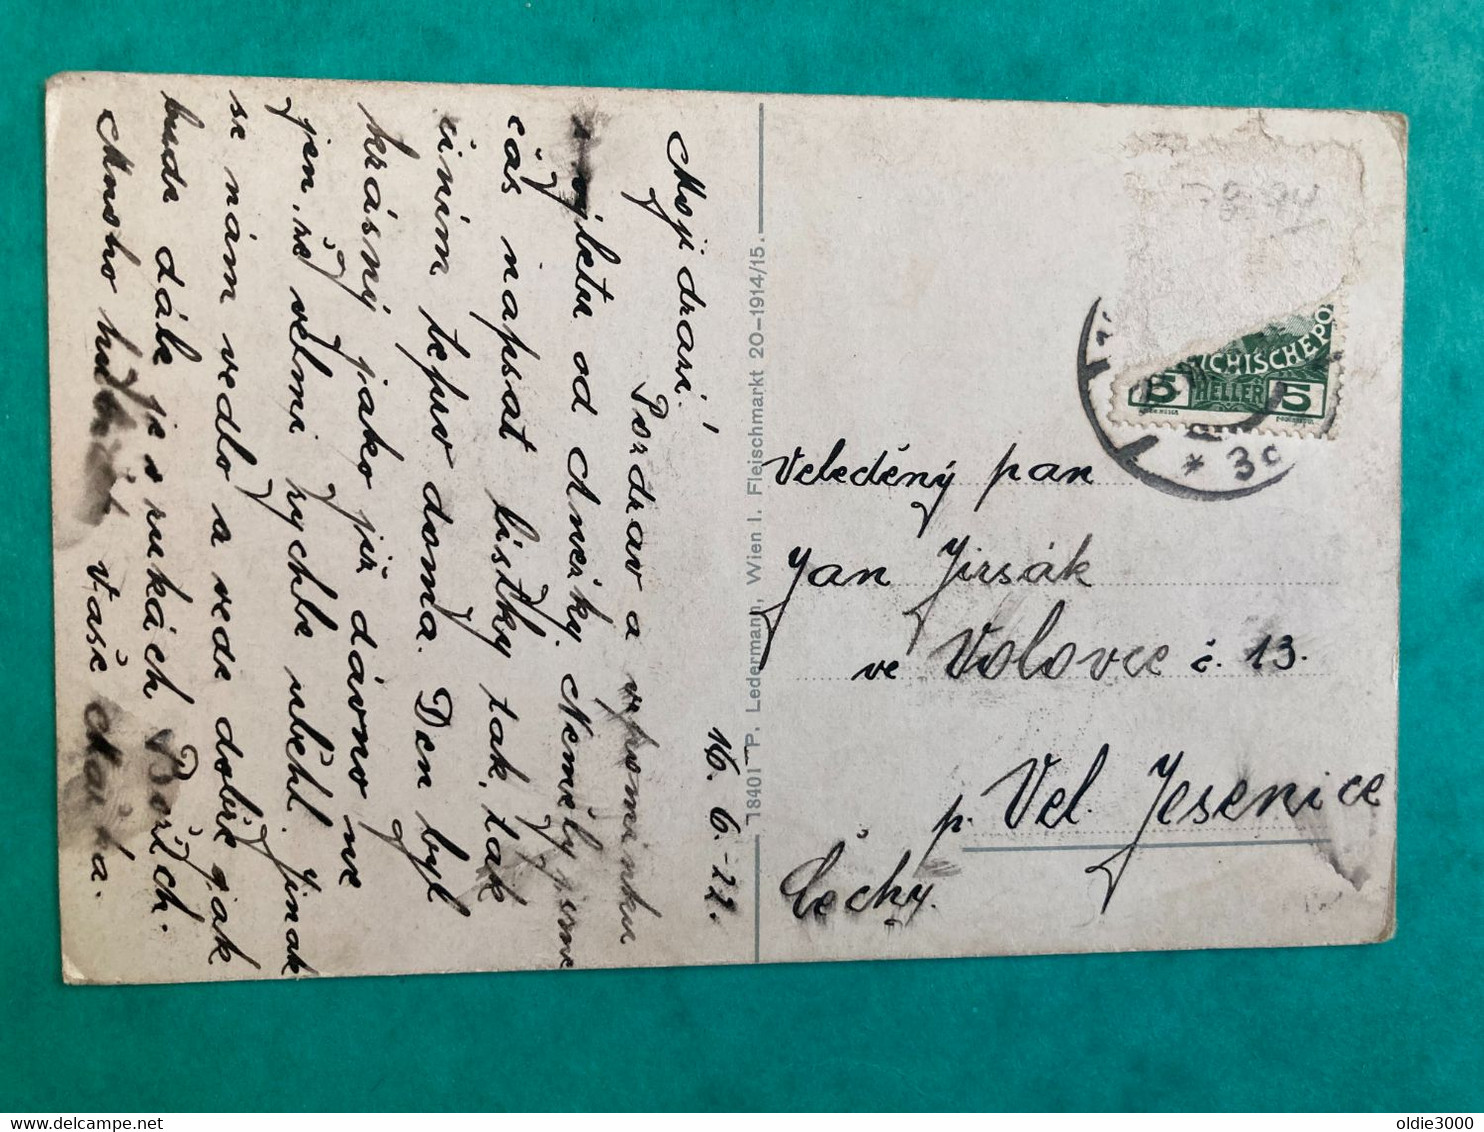 16. 6. - 22.
Moji drazí!
Pozdrav a vzpomínku
z výletu od Aněžky. Neměly jsme
čas napsat lístky tak, tak
činím teprv doma. Den byl
krásný jako již dávno ne
jen, že velmi rychle uběhl. Jinak
se nám vedlo a vede dobře jak
bude dále je v rukách Božích.
Mnoho Vaše Mařka.
18401 P. Ledermann, Wien I. Fleischmarkt 20-1914/15.
Veleděný pan
Jan Jirsák
ve Volovce č. 13.
p. Vel. Jesenice
Čechy.
ICHISCHEPO
5 HELLER 5
* 3c
oldie3000